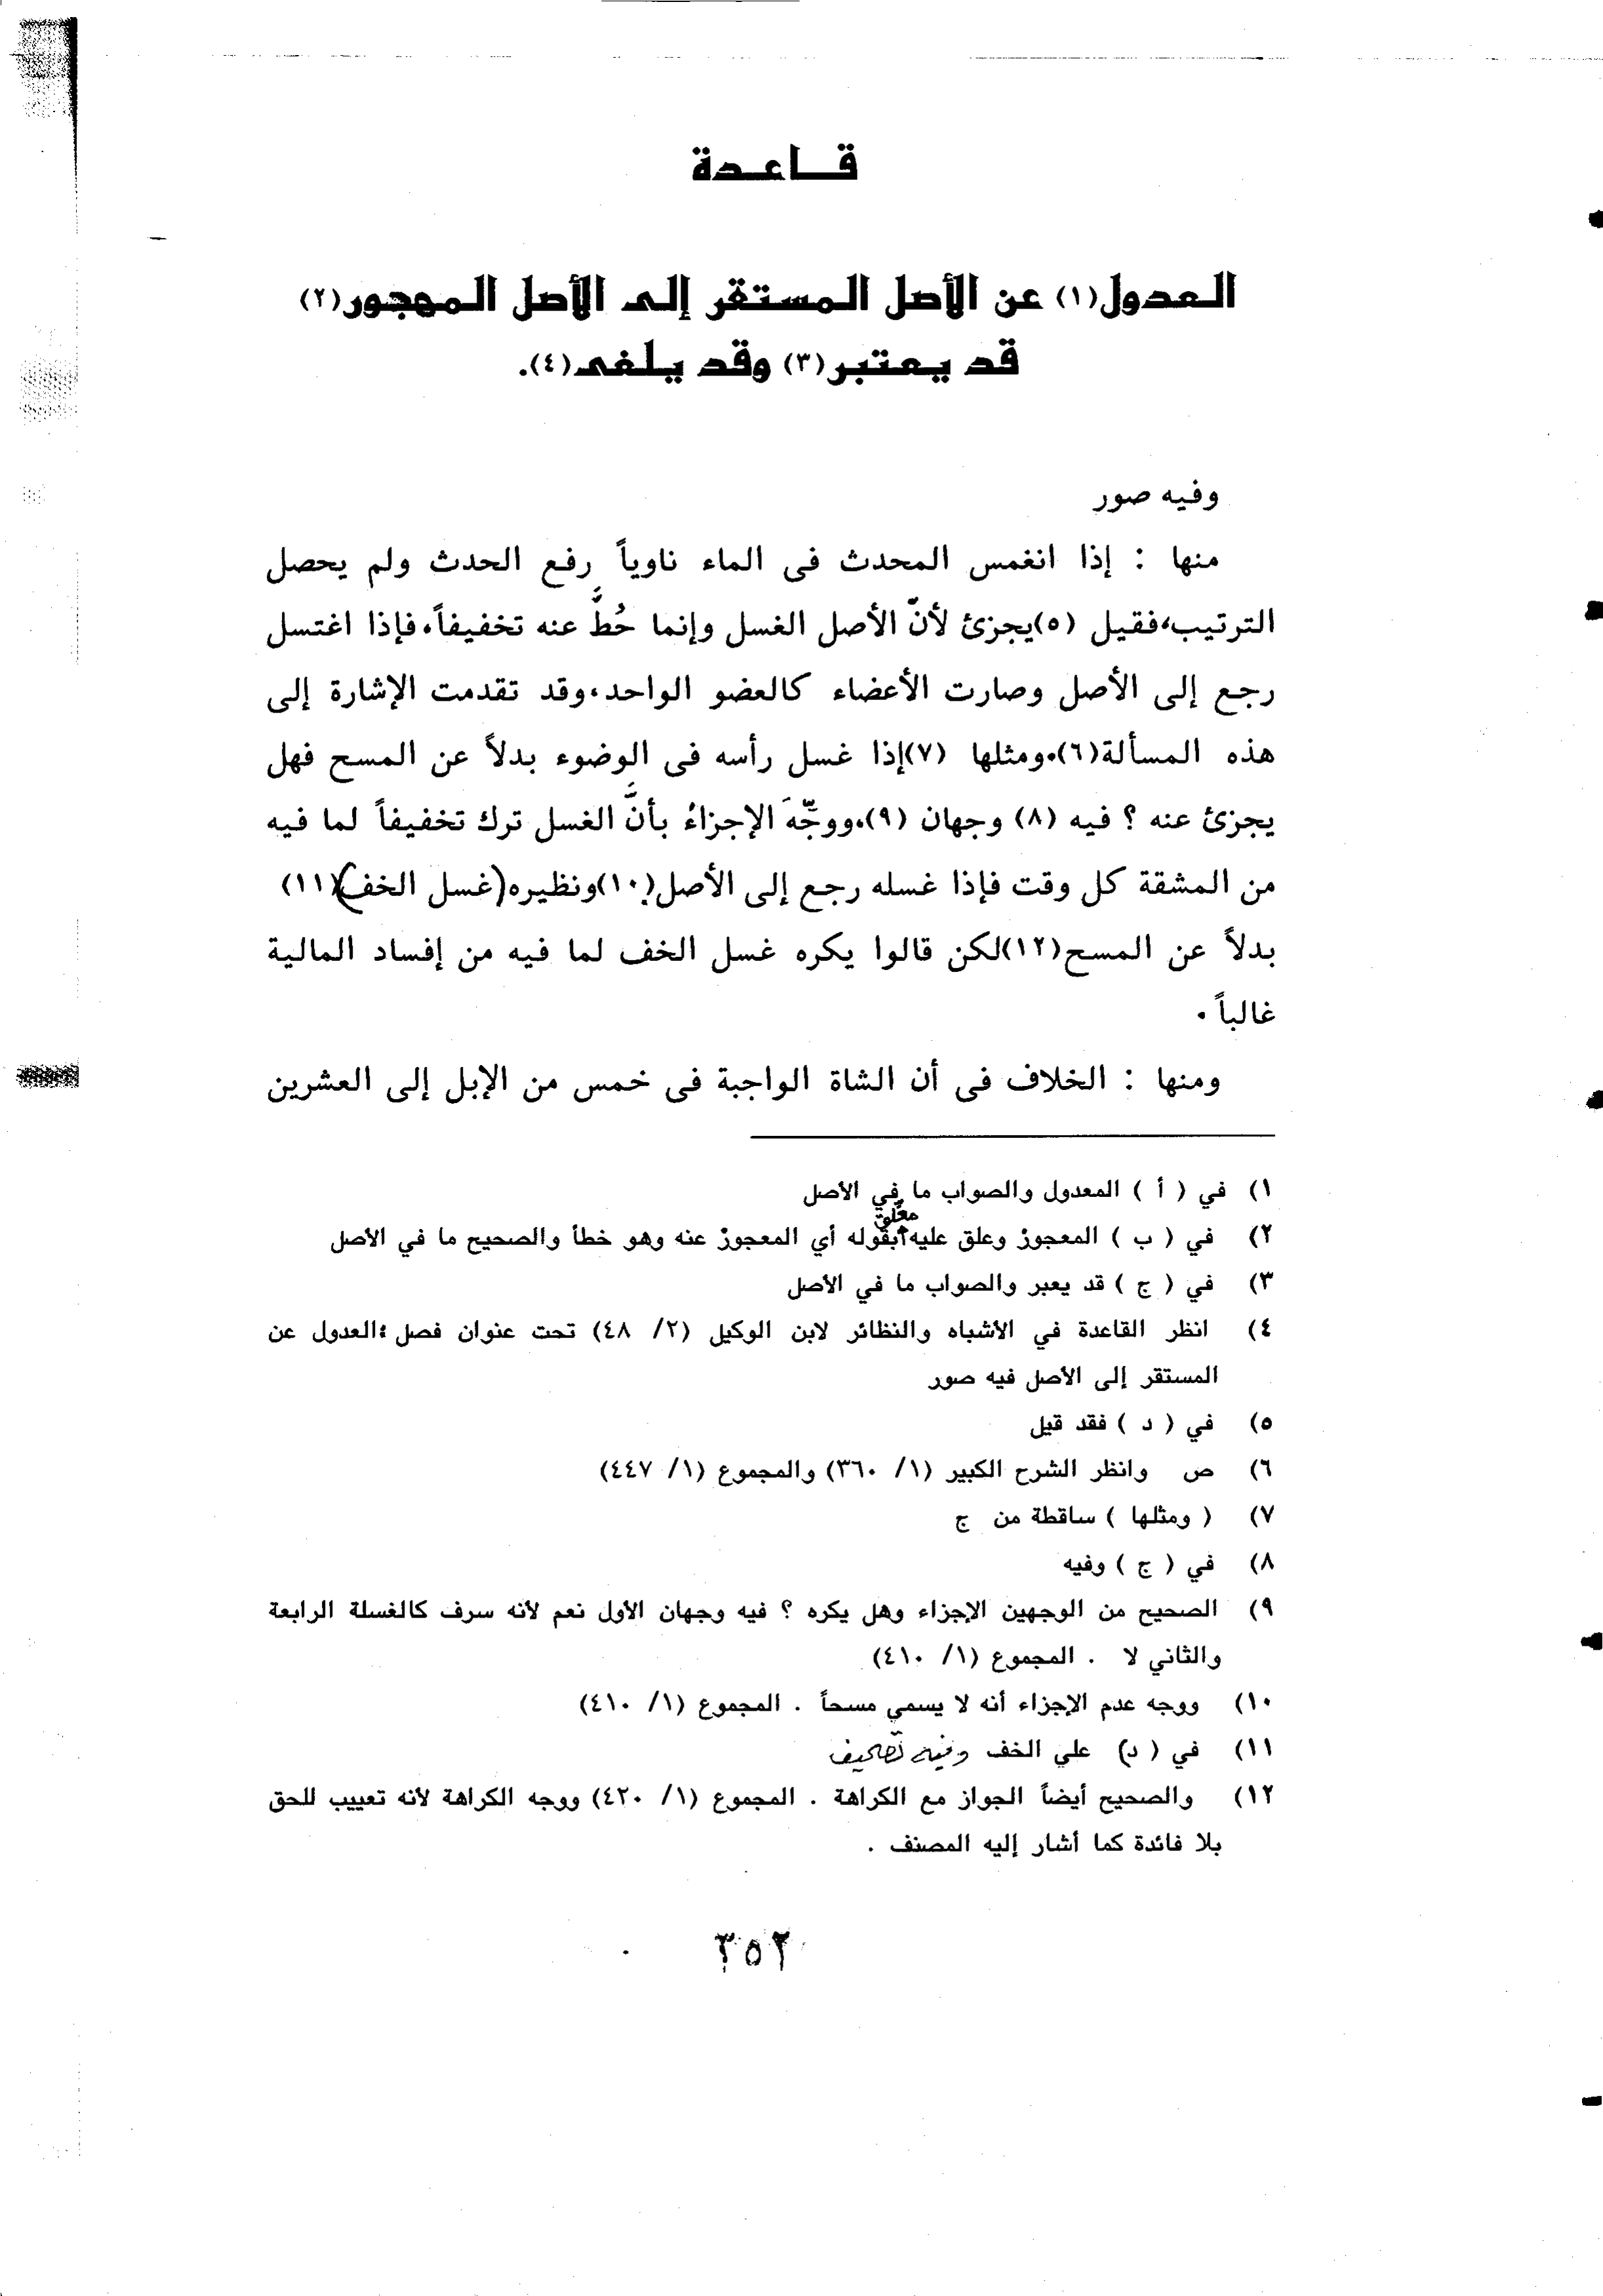 قـاعـدة
العدول(١) عن الأصل المستقر إلى الأصل المهجور(٢)
قد يعتبر(٣) وقد يلغى(٤).
وفيه صور
منها : إذا انغمس المحدث فى الماء ناوياً رفع الحدث ولم يحصل
الترتيب،فقيل (٥)يجزئ لأنّ الأصل الغسل وإنما حُطَّ عنه تخفيفاً،فإذا اغتسل
رجع إلى الأصل وصارت الأعضاء كالعضو الواحد،وقد تقدمت الإشارة إلى
هذه المسألة(٦).ومثلها (٧)إذا غسل رأسه فى الوضوء بدلاً عن المسح فهل
يجزئ عنه ؟ فيه (٨) وجهان (٩)،ووجِّهَ الإجزاءُ بأنَّ الغسل ترك تخفيفاً لما فيه
من المشقة كل وقت فإذا غسله رجع إلى الأصل(١٠)ونظيره(غسل الخف)(١١)
بدلاً عن المسح(١٢)لكن قالوا يكره غسل الخف لما فيه من إفساد المالية
غالباً .
ومنها : الخلاف فى أن الشاة الواجبة فى خمس من الإبل إلى العشرين
١) في ( أ ) المعدول والصواب ما في الأصل
٢) في ( ب ) المعجوز وعلق عليه معلق بقوله أي المعجوز عنه وهو خطأ والصحيح ما في الأصل
٣) في ( ج ) قد يعبر والصواب ما في الأصل
٤) انظر القاعدة في الأشباه والنظائر لابن الوكيل (٢/ ٤٨) تحت عنوان فصل :العدول عن
المستقر إلى الأصل فيه صور
٥) في ( د ) فقد قيل
٦) ص وانظر الشرح الكبير (١/ ٣٦٠) والمجموع (١/ ٤٤٧)
٧) ( ومثلها ) ساقطة من ج
٨) في ( ج ) وفيه
٩) الصحيح من الوجهين الإجزاء وهل يكره ؟ فيه وجهان الأول نعم لأنه سرف كالغسلة الرابعة
والثاني لا . المجموع (١/ ٤١٠)
١٠) ووجه عدم الإجزاء أنه لا يسمي مسحاً . المجموع (١/ ٤١٠)
١١) في ( د) علي الخف وفيه تصحيف
١٢) والصحيح أيضاً الجواز مع الكراهة . المجموع (١/ ٤٢٠) ووجه الكراهة لأنه تعييب للحق
بلا فائدة كما أشار إليه المصنف .
٣٥٢